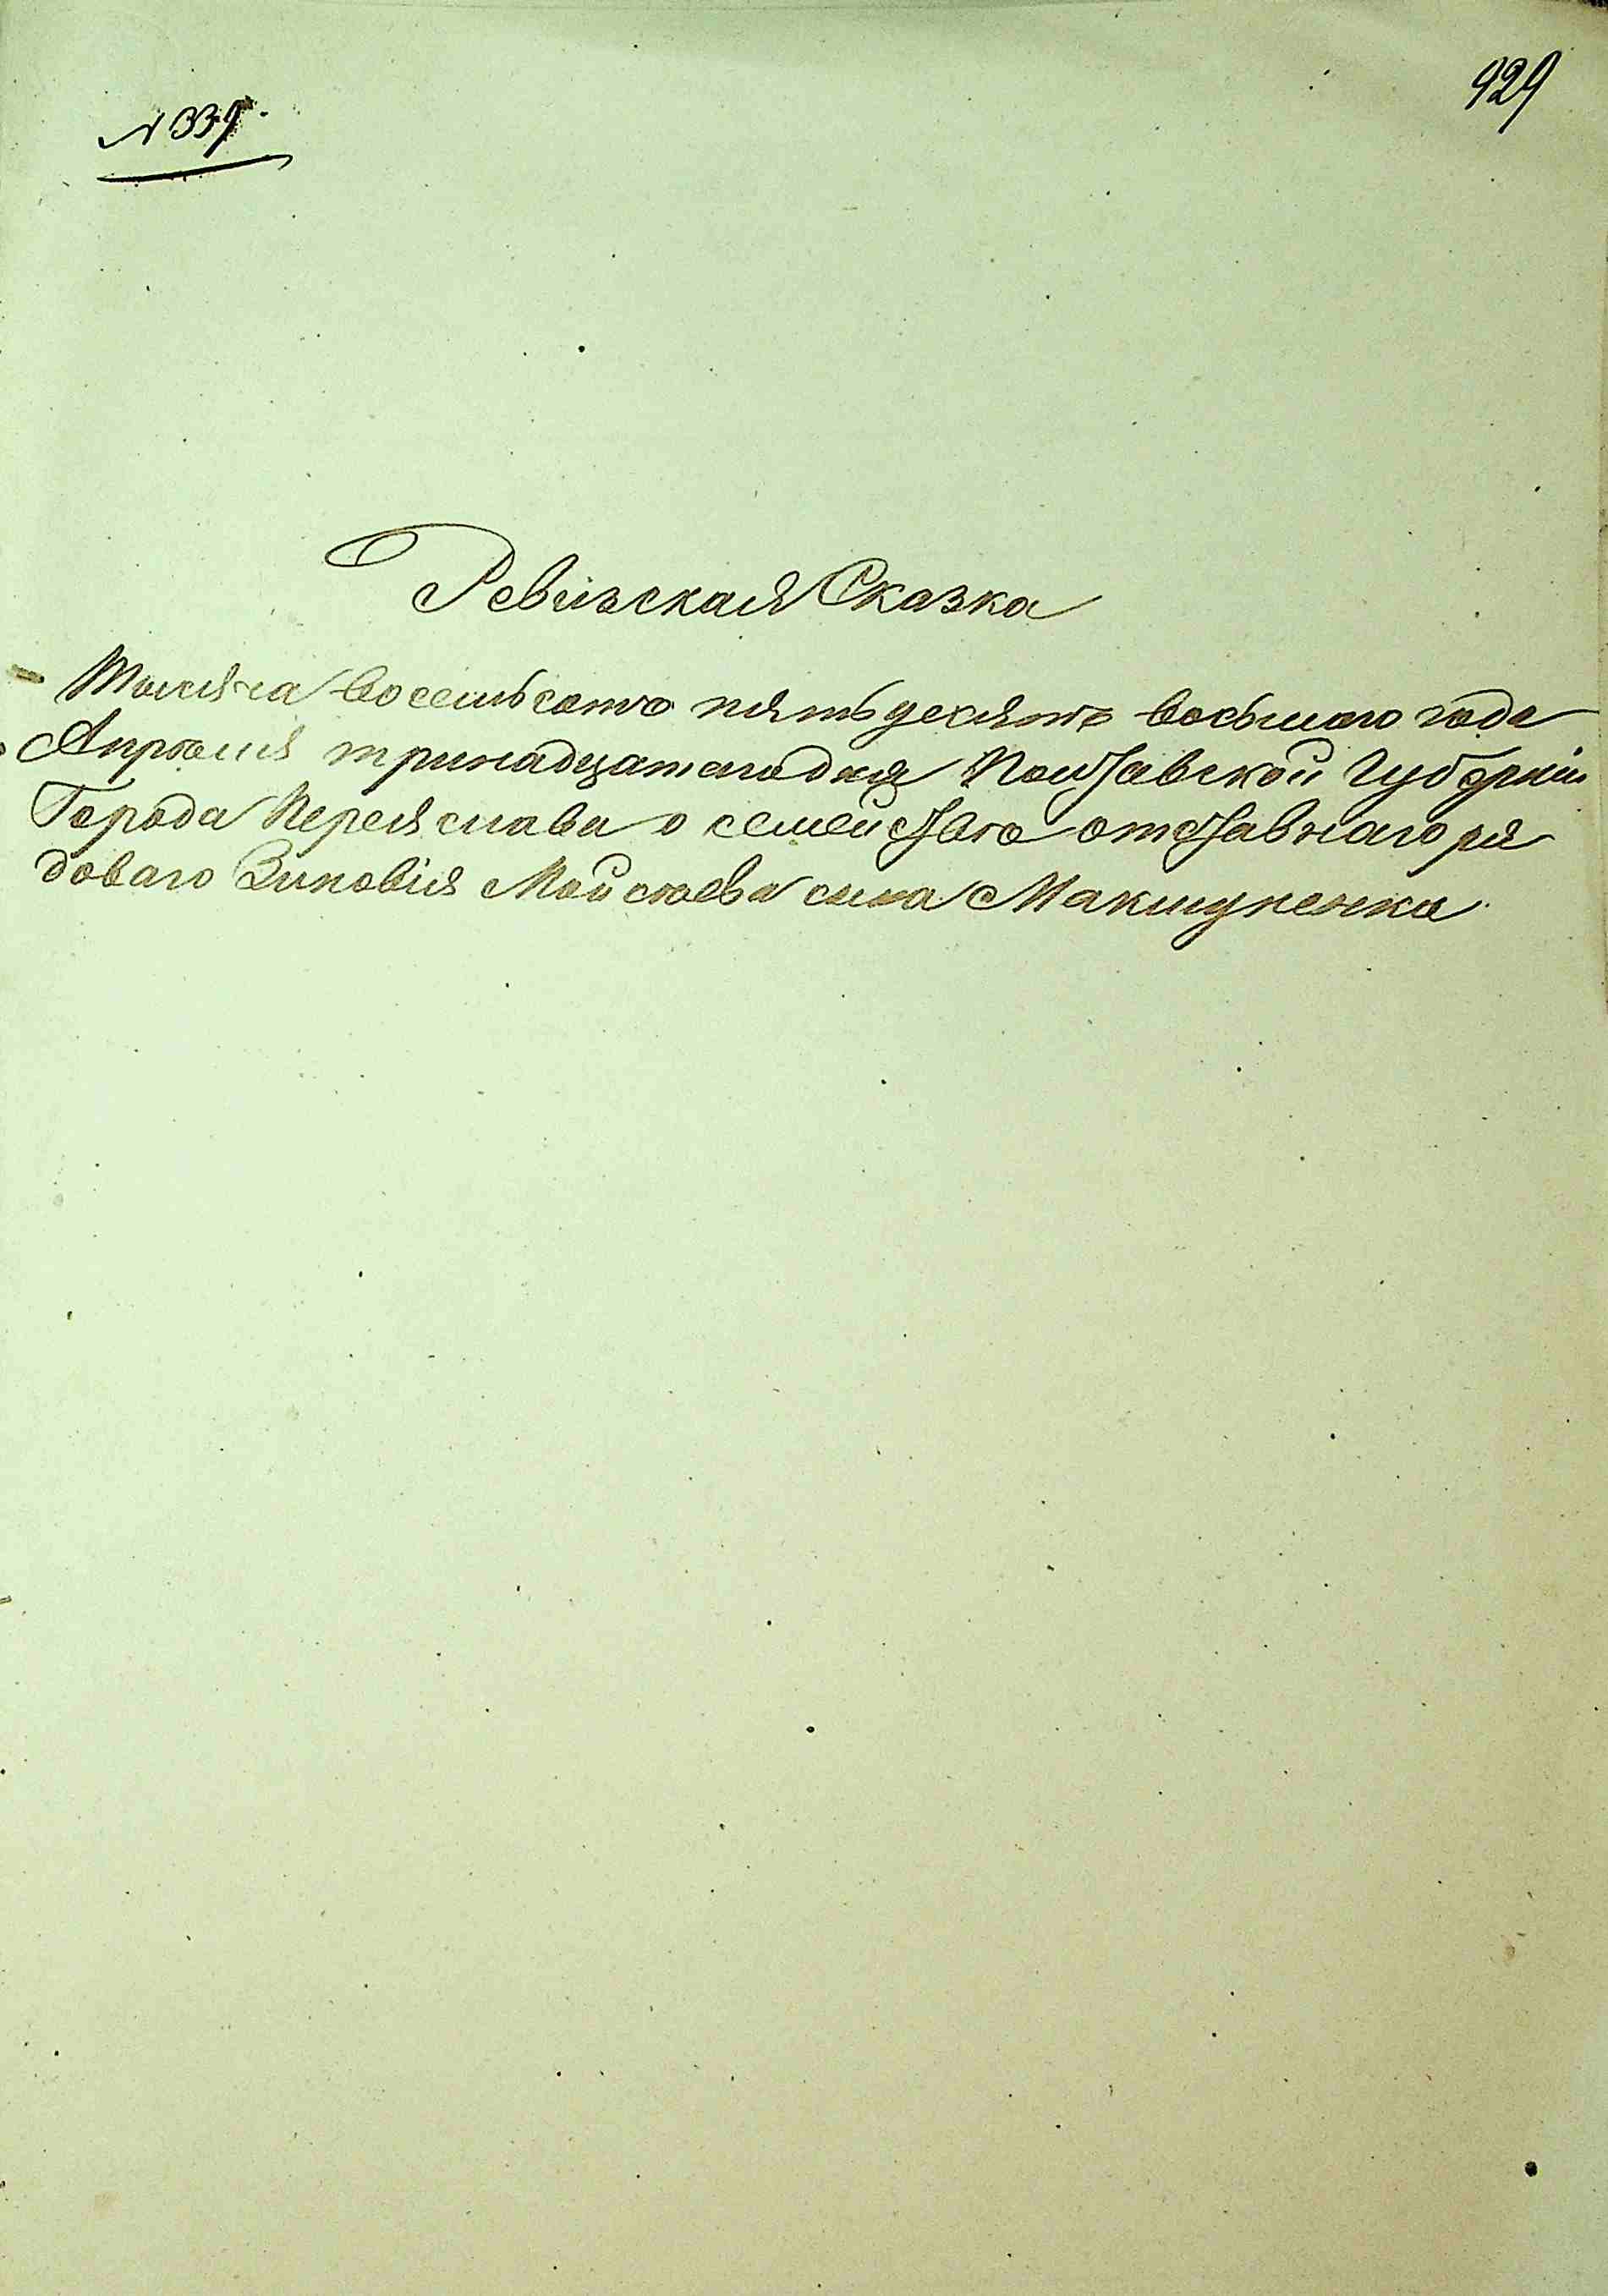 929
№ 337.
Ревизская Сказка
Тысяча восемьсотъ пятьдесятъ восьмаго года
Апрѣля тринадцатагодня Полтавской Губерніи
Города Переяслава о семействѣ отставнаго ря
доваго Зиновія Мойсѣева сына Макшуненка.